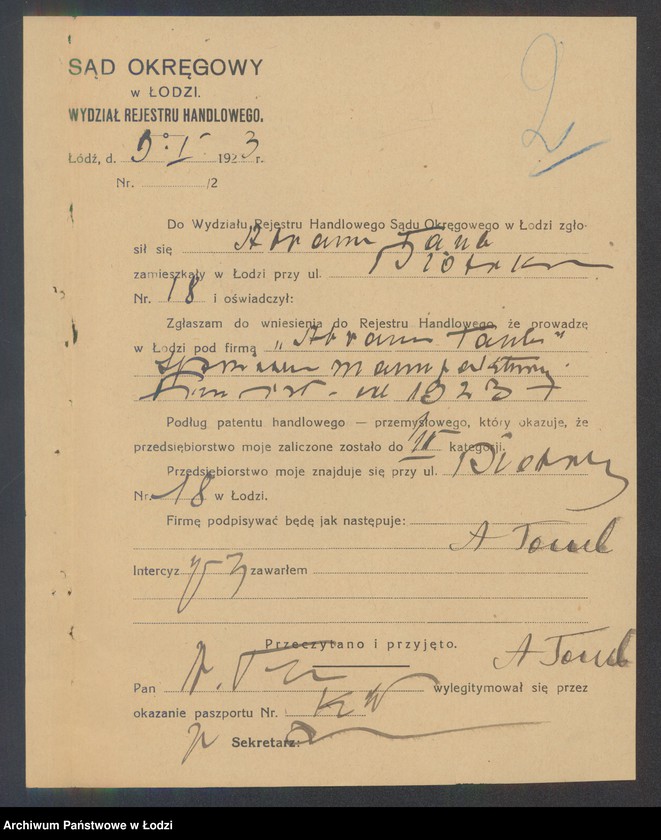 SĄD OKRĘGOWY
w ŁODZI.
WYDZIAŁ REJESTRU HANDLOWEGO.
2
Łódź, d. 9º I 1923 r.
Nr. /2
Do Wydziału Rejestru Handlowego Sądu Okręgowego w Łodzi zgło-
sił się Abram Taub
zamieszkały w Łodzi przy ul.
Nr. 18 i oświadczył:
Zgłaszam do wniesienia do Rejestru Handlowego, że prowadzę
w Łodzi pod firmą „Abram Taub"
manufaktury
1923
Podług patentu handlowego — przemysłowego, który okazuje, że
przedsiębiorstwo moje zaliczone zostało do II kategorji.
Przedsiębiorstwo moje znajduje się przy ul.
Nr. 18 w Łodzi.
Firmę podpisywać będę jak następuje:
A Taub
Intercyz zawarłem
Przeczytano i przyjęto.
A Taub
Pan wylegitymował się przez
okazanie paszportu Nr.
Sekretarz:
Archiwum Państwowe w Łodzi